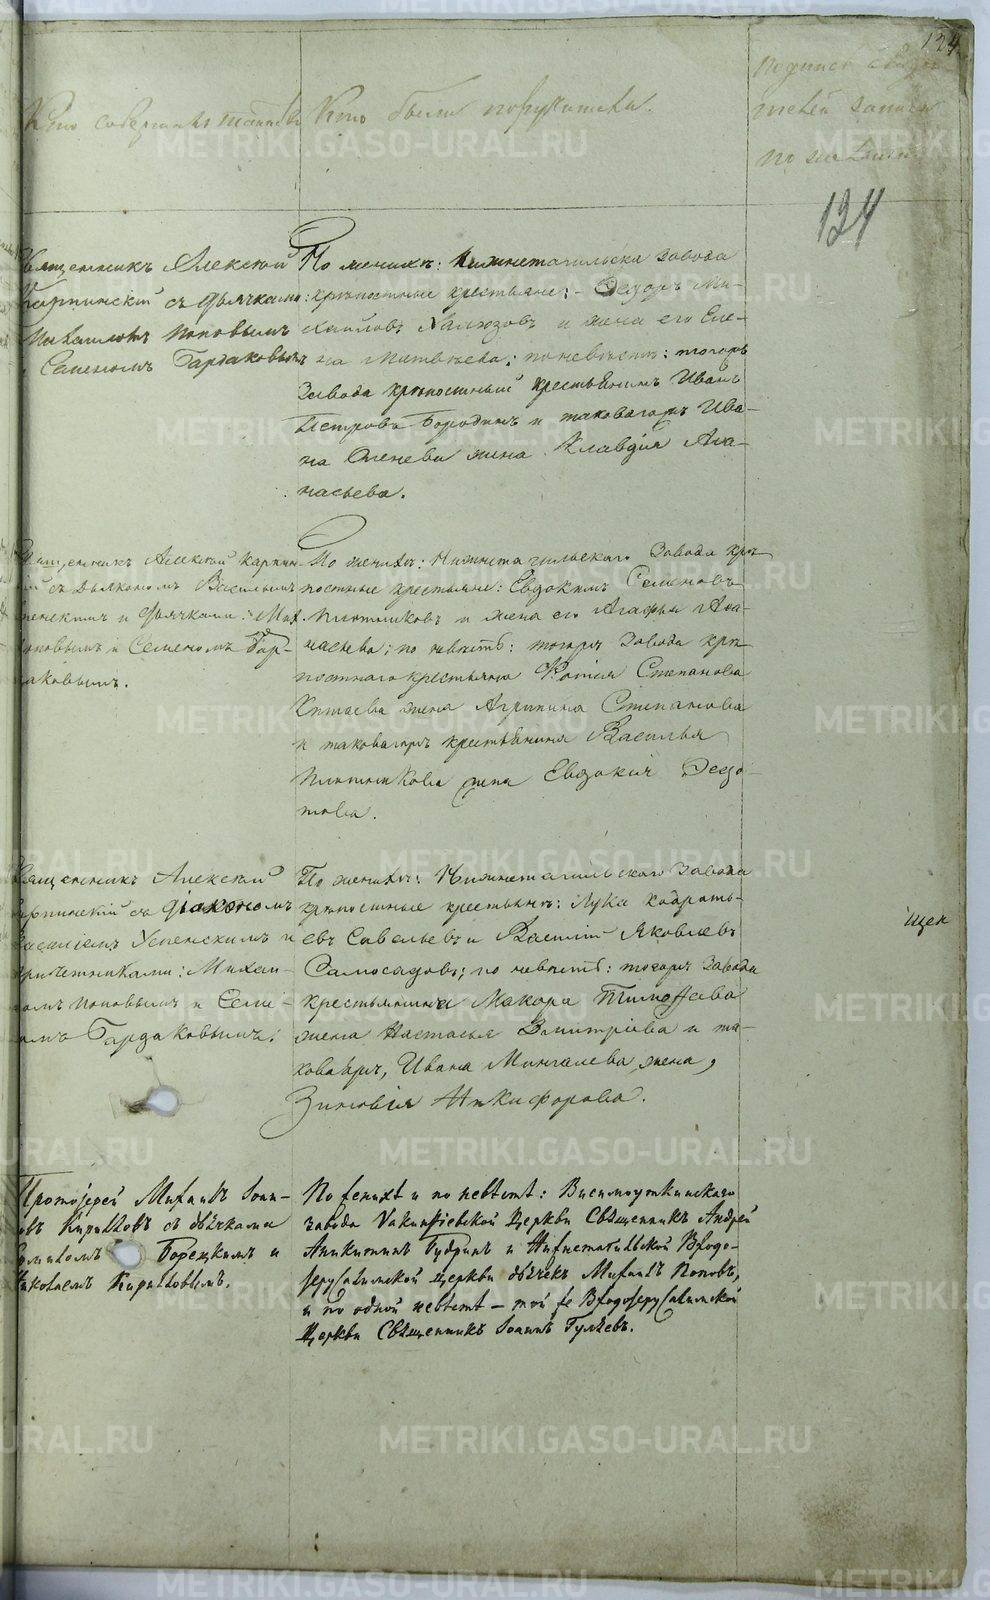 124
Кто совершалъ таинство
Кто были поручители.
Подпись свиде-
телей записи
по желанію
124
Священникъ Алексѣй
Карпинскій съ дьячками:
Михаиломъ Поповымъ
Семеномъ Бардаковымъ
По женихѣ: Нижнетагильска завода
крѣпостные крестьяне: Ѳедоръ Ми-
хайловъ и жена его Еле-
на Матвѣева; по невѣстѣ: тогожъ
завода крѣпостный крестьянинъ Иванъ
Петровъ Бородинъ и таковагожъ Ива-
на жена Клавдія Аѳа-
насьева.
Священникъ Алексѣй Карпин-
скій съ Дьякономъ Васильемъ
Успенскимъ и дьячками: Мих.
Поповымъ и Семеномъ Бар-
даковымъ.
По женихѣ: Нижнетагильскаго завода крѣ-
постные крестьяне: Евдокимъ Семеновъ
Плотниковъ и жена его Агафья Аѳа-
насьева; по невѣстѣ: тогожъ завода крѣ-
постнаго крестьянина Фотія Степанова
Китаева жена Агрипина Степанова
и таковагожъ крестьянина Василья
Плотникова жена Евдокія Ѳедо-
това.
Священникъ Алексѣй
Карпинскій съ діакономъ
Василіемъ Успенскимъ и
причетниками: Михаи-
ломъ Поповымъ и Семе-
номъ Бардаковымъ.
По женихѣ: Нижнетагильскаго завода
крѣпостные крестьяне: Лука Кодрать-
евъ Савельевъ и Василій Яковлевъ
Самосадовъ; по невѣстѣ: тогожъ завода
крестьянина Макара Тимоѳѣева
жена Настасья Дмитріева и та-
коваго жъ, Ивана Мингалева жена,
Зиновія Никифорова.
щен
Протоіерей Михаилъ Іоан-
новъ Кирилловъ съ дьячками
Борецкимъ и
Николаемъ Кирилловымъ.
По женихѣ и по невѣстѣ: Висимоуткинскаго
завода Церкви Священникъ Андрей
Аникитинъ Будринъ и Нижнетагильской Входо-
іерусалимской Церкви дьячекъ Михаилъ Поповъ,
и по одной невѣстѣ – той же Входоіерусалимской
Церкви Священникъ Іоаннъ Гуляевъ.
METRIKI.GASO-URAL.RU